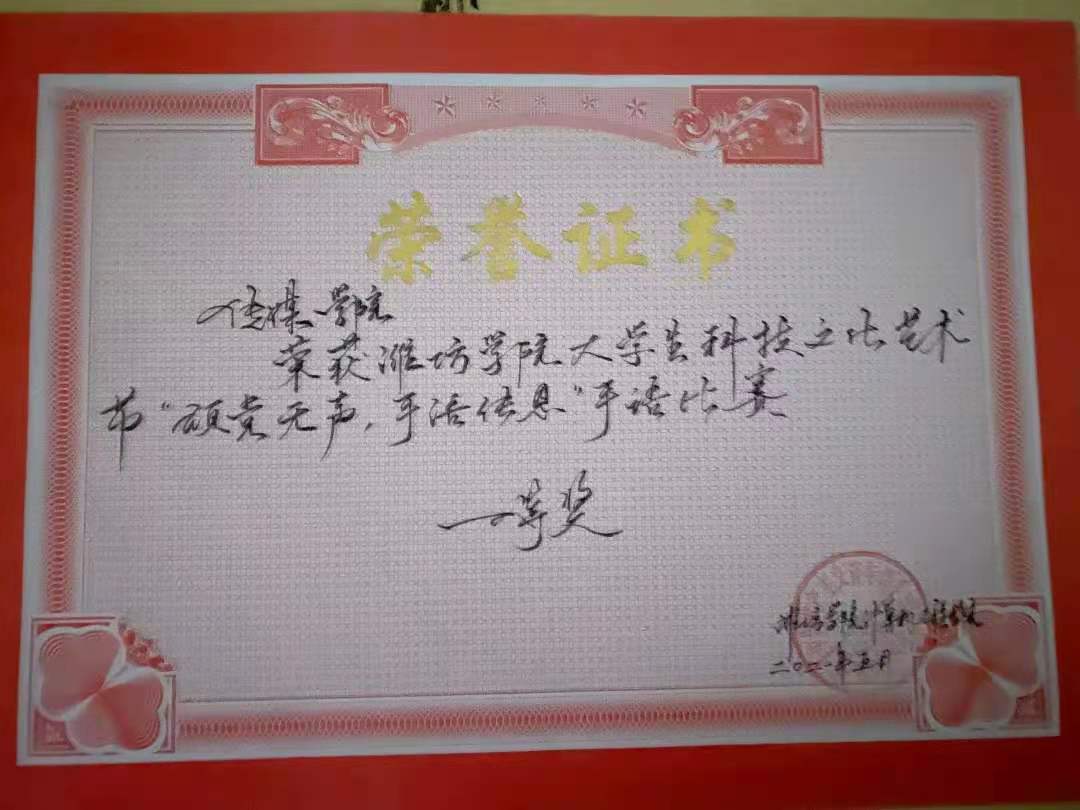 荣誉证书
传媒学院
荣获潍坊学院大学生科技文化艺术
节“颂党无声,手活传息”手语比赛
一等奖
潍坊学院计算机工程学院
二〇二一年五月